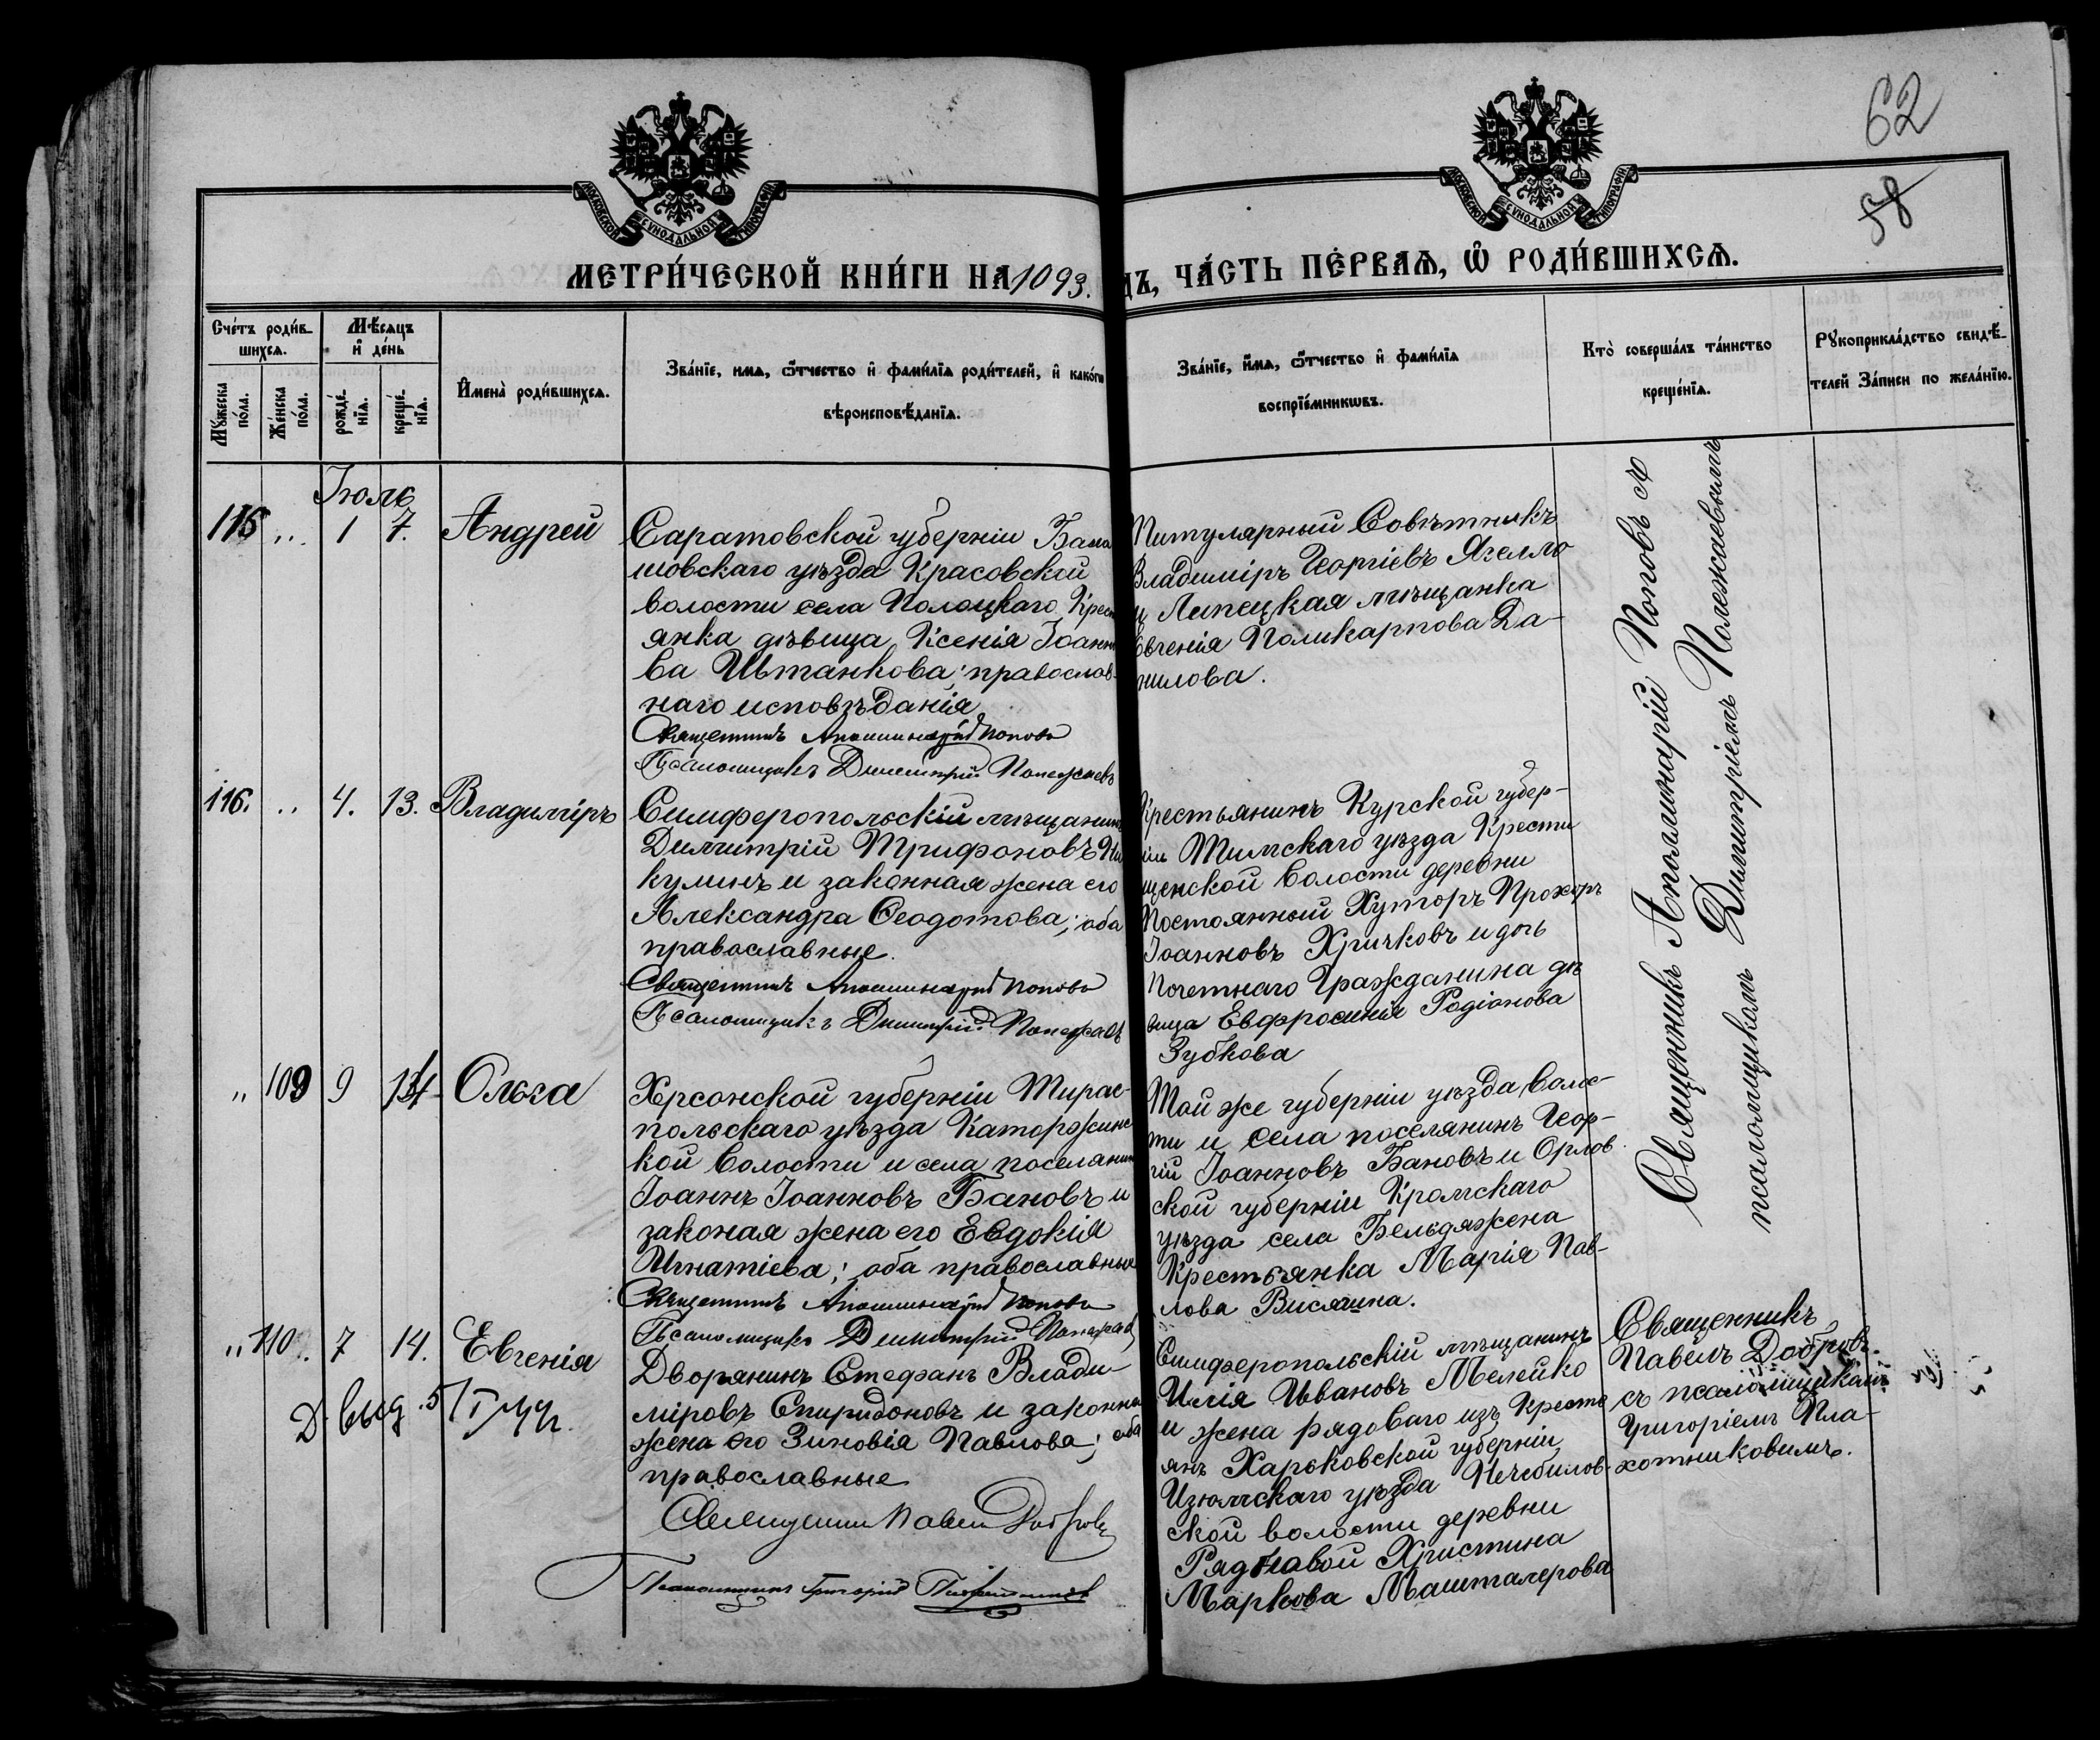 62
58
МОСКОВСКОЙ СѴНОДАЛЬНОЙ ТИПОГРАФІИ
МОСКОВСКОЙ СѴНОДАЛЬНОЙ ТИПОГРАФІИ
МЕТРИ́ЧЕСКОЙ КНИ́ГИ НА 1893. ДЪ, ЧА́СТЬ ПЕ́РВАѦ, Ѡ҆ РОДИ́ВШИХСѦ.
Сче́тъ роди́в-
шихсѧ.
Мꙋ́жеска по́ла.
Же́нска по́ла.
Мѣ́сѧцъ
и҆ де́нь
рожде́-
нїѧ.
креще́-
нїѧ.
И҆мена̀ роди́вшихсѧ.
Зва́нїе, имѧ, ѻ҆́тчество и҆ фами́лїѧ роди́телей, и҆ како́гѡ
вѣроисповѣ́данїѧ.
Зва́нїе, и҆́мѧ, ѻ҆́тчество и҆ фами́лїѧ
воспрїе́мникѡвъ.
Кто̀ соверша́лъ та́инство
креще́нїѧ.
Рꙋкоприкла́дство свидѣ́-
телей за́писи по жела́нїю.
Іюль
115 .. 1 7. Андрей
Саратовской губерніи Бала
шовскаго уѣзда Красовской
волости села Полоцкаго Крест
янка дѣвица Ксенія Іоанн
ва Штанкова; православ-
наго исповѣданія
Священникъ Аполлинарій Поповъ
Псаломщикъ Димитрій Полежаевъ
Титулярный Совѣтникъ
Владиміръ Георгіевъ Ягелло
и Липецкая мѣщанка
Евгенія Поликарпова Да-
нилова.
Священникъ Аполлинарій Поповъ съ
псаломщикомъ Димитріемъ Полежаевымъ
116. .. 4. 13. Владиміръ
Симферопольскій мѣщанинъ
Димитрій Трифоновъ
кулинъ и законная жена его
Александра Ѳеодотова; оба
православные.
Священникъ Аполлинарій Поповъ
Псаломщикъ Димитрій Полежаевъ
Крестьянинъ Курской губер-
ніи Тимскаго уѣзда Крести
щенской волости деревни
Постоянный Хуторъ Прохоръ
Іоанновъ Хричковъ и дочь
Почетнаго Гражданина дѣ
вица Евфросинія Родіонова
Зубкова
„ 109 9 14 Ольга
Херсонской губерніи Тирас-
польскаго уѣзда Каторжинс
кой волости и села поселянин
Іоаннъ Іоанновъ Бановъ и
законая жена его Евдокія
Игнатіева; оба православные
Священникъ Аполлинарій Поповъ
Псаломщикъ Димитрій Полежаев
Той же губерніи уѣзда волос-
ти и села поселянинъ Геор-
гій Іоанновъ Бановъ и Орлов
ской губерніи Кромскаго
уѣзда села Бельдяжена
Крестьянка Марія Пав-
лова Висягина.
„ 110 .. 7 14. Евгенія
Д. выд. 5/I
Дворянинъ Стефанъ Влади-
міровъ Спиридоновъ и законна
жена его Зиновія Павлова; оба
православные
Священникъ Павелъ Добровъ
Псаломщикъ Григорій Плахотниковъ
Симферопольскій мѣщанинъ
Илія Ивановъ Мелейко
и жена рядоваго изъ кресть
янъ Харьковской губерніи
Изюмскаго уѣзда Печебилов-
ской волости деревни
Рядновой Христина
Маркова Машталерова
Священникъ
Павелъ Добровъ
съ псаломщикомъ
Григоріемъ Пла-
хотниковимъ.